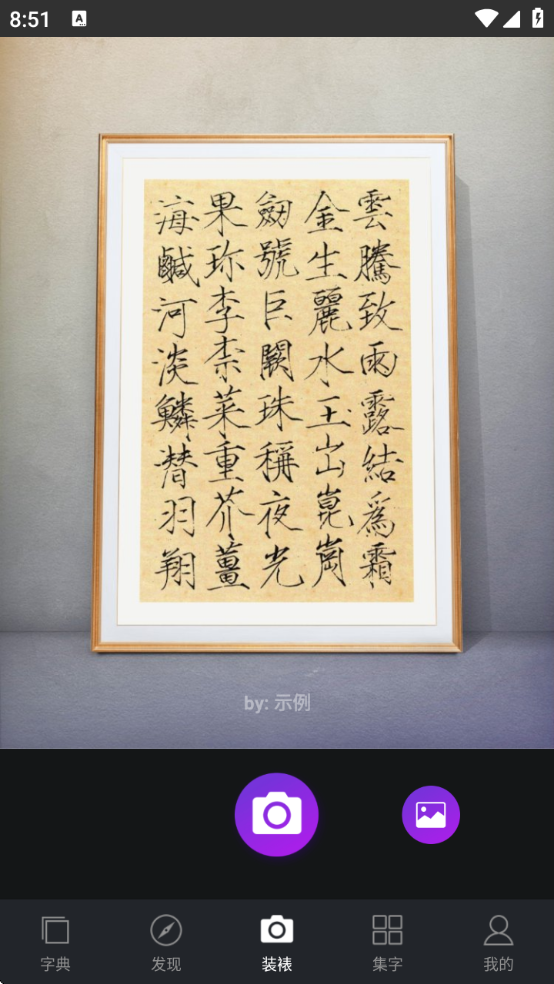 8:51
A
雲騰致雨露結爲霜
金生麗水玉出崑崗
劒號巨闕珠稱夜光
果珎李柰菜重芥薑
海鹹河淡鱗潛羽翔
by: 示例
字典
发现
装裱
集字
我的